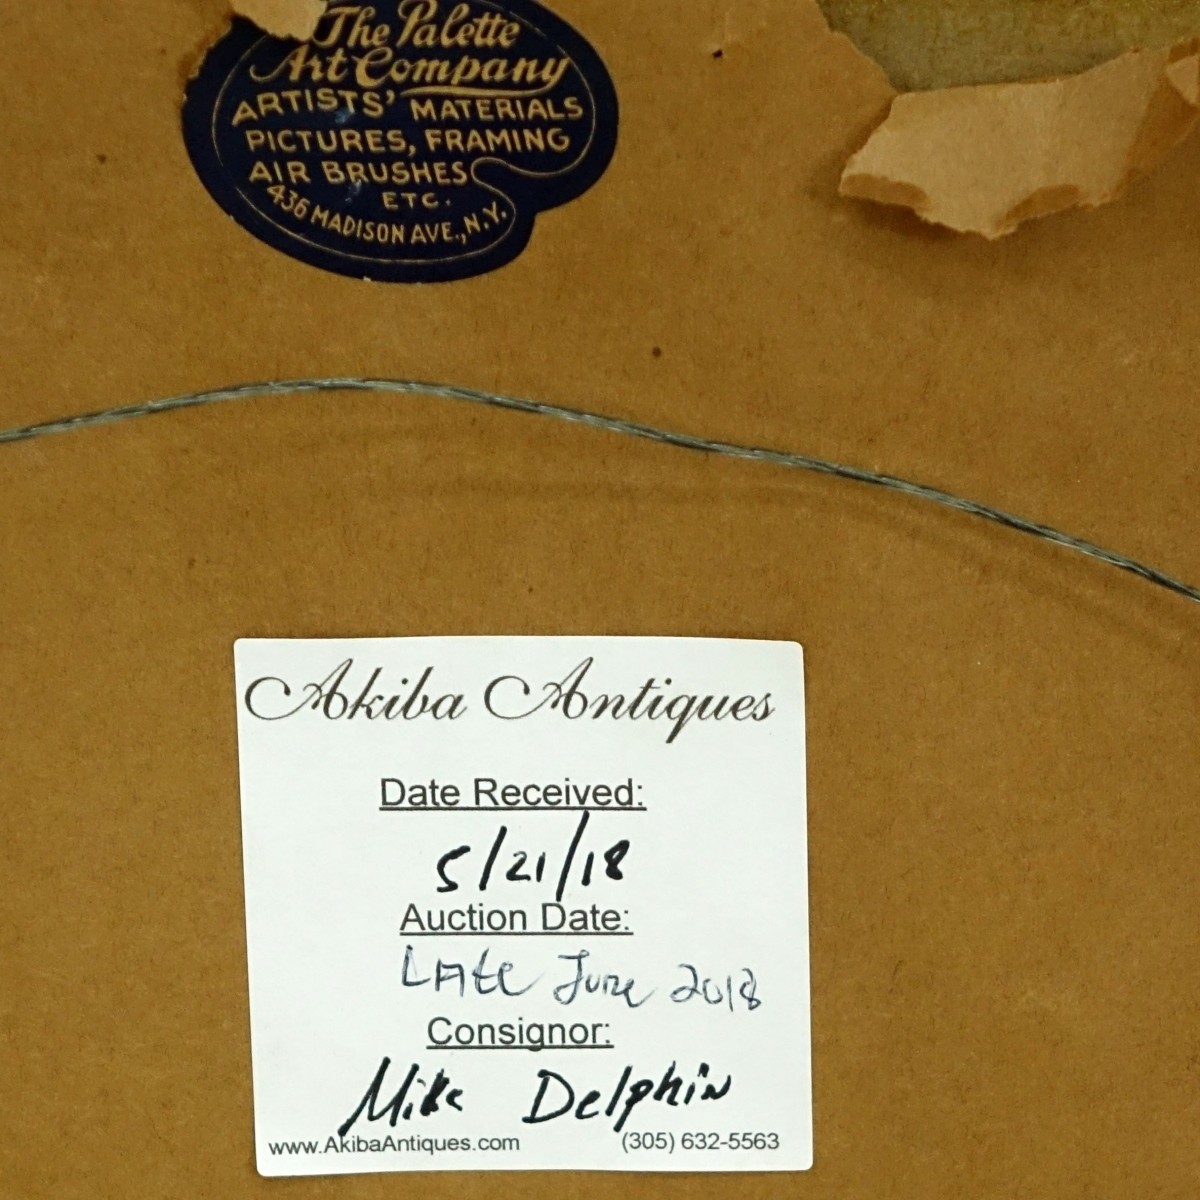 The Palette
Art Company
ARTISTS' MATERIALS
PICTURES, FRAMING
AIR BRUSHES
ETC.
436 MADISON AVE., N.Y.
Akiba Antiques
Date Received:
5/21/18
Auction Date:
Late June 2018
Consignor:
Mike Delphin
www.AkibaAntiques.com (305) 632-5563